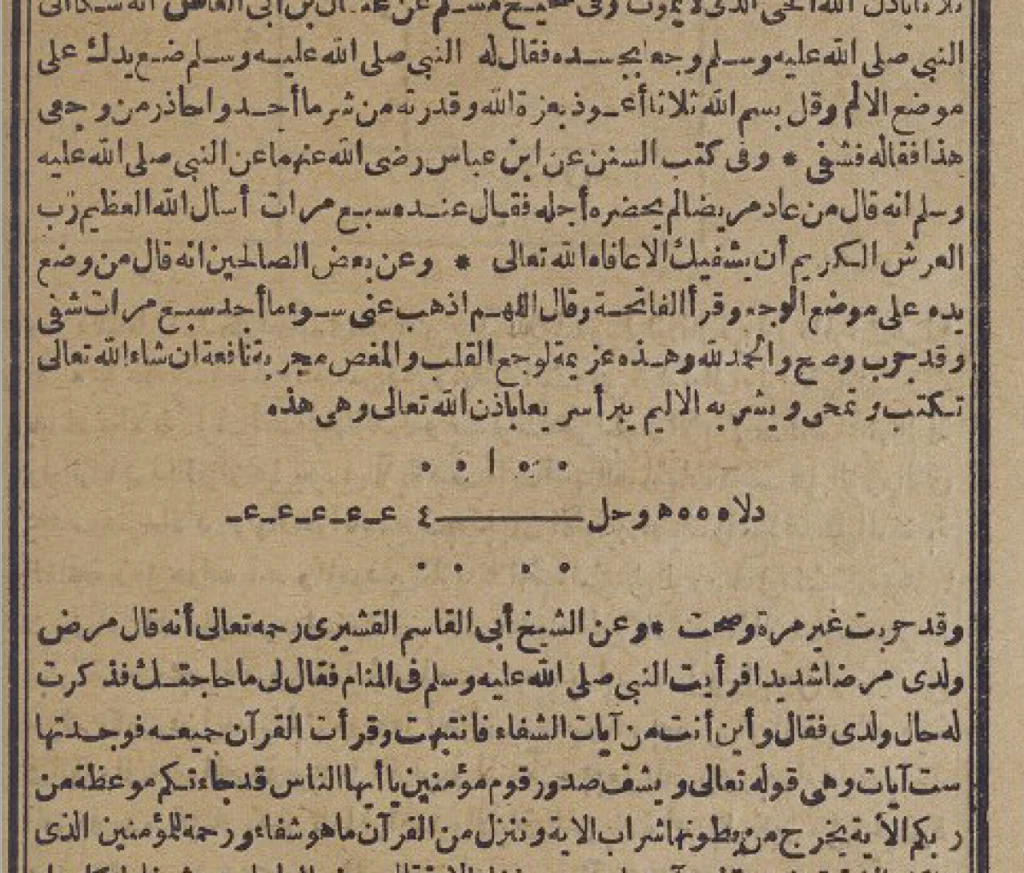 باذن الله الحي الذي لا يموت وفى صحيح مسلم عن عثمان بن أبى العاص انه شكا الى
النبي صلى الله عليه وسلم وجعا بجسده فقال له النبي صلى الله عليه وسلم ضع يدك على
موضع الالم وقل بسم الله ثلاثا أعوذ بعزة الله وقدرته من شر ما أجد واحاذر من وجعى
هذا فقاله فشفى * وفى كتب السنن عن ابن عباس رضى الله عنهما عن النبي صلى الله عليه
وسلم انه قال من عاد مريضا لم يحضره أجله فقال عنده سبع مرات أسأل الله العظيم رب
العرش الكريم أن يشفيك الا عافاه الله تعالى * وعن بعض الصالحين انه قال من وضع
يده على موضع الوجع وقرأ الفاتحة وقال اللهم اذهب عنى سوء ما أجد سبع مرات شفى
وقد جرب وصح والحمد لله وهذه عزيمة لوجع القلب والمغص مجربة نافعة ان شاء الله تعالى
تكتب وتمحى ويشربه الاليم يبرأ سريعا باذن الله تعالى وهى هذه
ا
دلاه ه ه ه وحل ــــــ ٤ عـ عـ عـ عـ عـ
وقد جربت غير مرة وصحت * وعن الشيخ أبى القاسم القشيرى رحمه تعالى أنه قال مرض
ولدى مرضا شديدا فرأيت النبي صلى الله عليه وسلم فى المنام فقال لى ما حاجتك فذكرت
له حال ولدى فقال وأين أنت من آيات الشفاء فانتبهت وقرأت القرآن جميعه فوجدتها
ست آيات وهى قوله تعالى ويشف صدور قوم مؤمنين يا أيها الناس قد جاءتكم موعظة من
ربكم الآية يخرج من بطونها شراب الاية وننزل من القرآن ما هو شفاء ورحمة للمؤمنين الذى